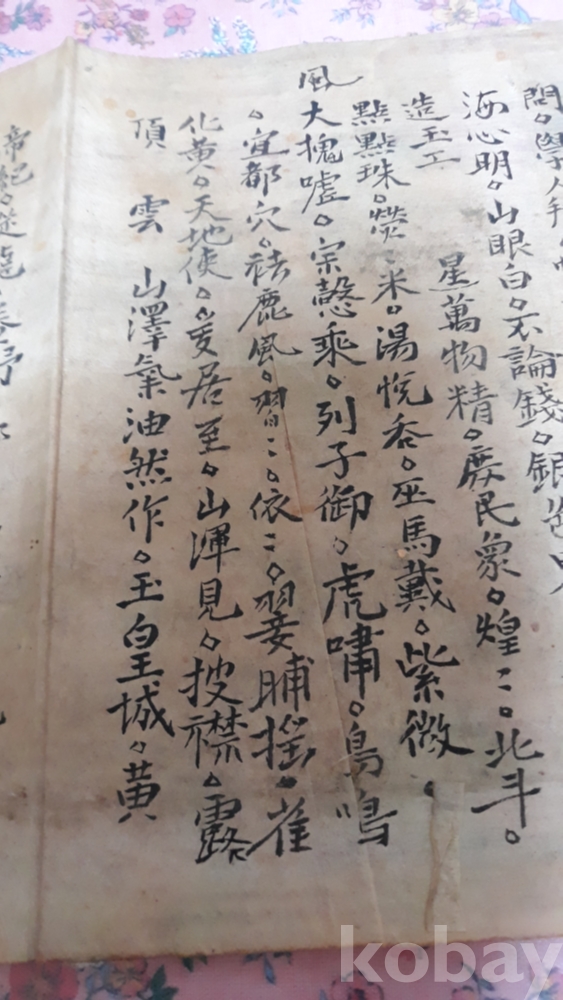 問。學
海。心明。山眼白。不論錢。銀
造玉工　星萬物精。庶民象。煌〻。北斗。
點點珠。熒〻米。湯悅吞。巫馬戴。紫微。
風大塊噓。宗慤乘。列子御。虎嘯。鳥鳴
。宜都穴。祛鹿風。習〻。依〻。翣脯搖。雀
化黃。天地使。爰居至。山渾見。披襟。露
頂　雲　山澤氣油然作。玉皇城。黃
帝紀。從龍。
kobay